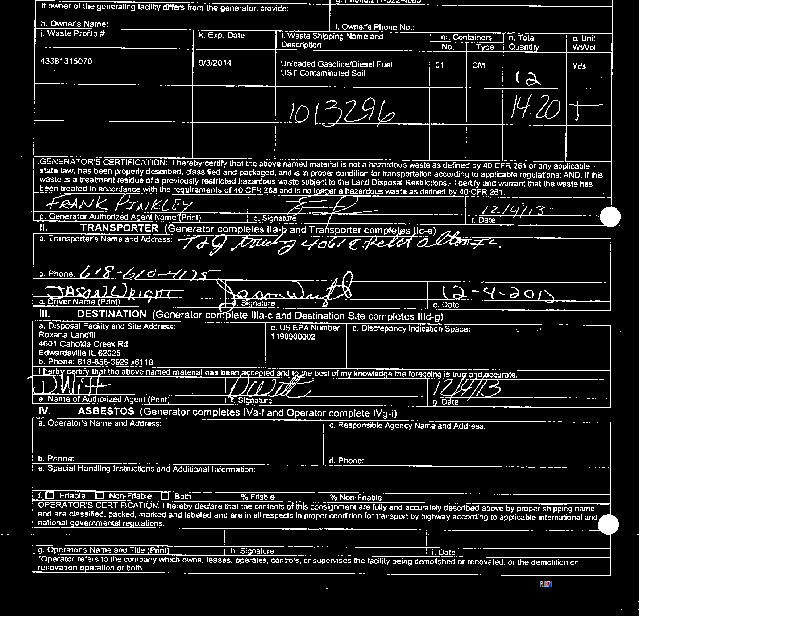 If owner of the generating facility differs from the generator, provide:
h. Owner's Name:
i. Owner's Phone No.:
j. Waste Profile #
k. Exp. Date
l. Waste Shipping Name and Description
m. Containers
No.
Type
n. Total Quantity
o. Unit Wt/Vol
43381315070
9/3/2014
Unleaded Gasoline/Diesel Fuel
UST Contaminated Soil
01
CM
12
Yds
1013296
14.20
T
GENERATOR'S CERTIFICATION: I hereby certify that the above named material is not a hazardous waste as defined by 40 CFR 261 or any applicable
state law, has been properly described, classified and packaged, and is in proper condition for transportation according to applicable regulations; AND, if this
waste is a treatment residue of a previously restricted hazardous waste subject to the Land Disposal Restrictions, I certify and warrant that the waste has
been treated in accordance with the requirements of 40 CFR 268 and is no longer a hazardous waste as defined by 40 CFR 261.
FRANK PINKLEY
12/4/13
p. Generator Authorized Agent Name (Print)
q. Signature
r. Date
II. TRANSPORTER (Generator completes IIa-b and Transporter completes IIc-e)
a. Transporter's Name and Address:
b. Phone: 618-610-4175
JASON WRIGHT
Jason Wright
12-4-2013
c. Driver Name (Print)
d. Signature
e. Date
III. DESTINATION (Generator complete IIIa-c and Destination Site completes IIId-g)
a. Disposal Facility and Site Address:
c. US EPA Number
d. Discrepancy Indication Space:
Roxana Landfill
1190900002
4601 Cahokia Creek Rd
Edwardsville IL 62025
b. Phone: 618-656-3929 x6118
I hereby certify that the above named material has been accepted and to the best of my knowledge the foregoing is true and accurate.
D Witt
D Witt
12/4/13
e. Name of Authorized Agent (Print)
f. Signature
g. Date
IV. ASBESTOS (Generator completes IVa-f and Operator complete IVg-i)
a. Operator's Name and Address:
c. Responsible Agency Name and Address:
b. Phone:
d. Phone:
e. Special Handling Instructions and Additional Information:
f. Friable Non-Friable Both % Friable % Non-Friable
OPERATOR'S CERTIFICATION: I hereby declare that the contents of this consignment are fully and accurately described above by proper shipping name
and are classified, packed, marked and labeled and are in all respects in proper condition for transport by highway according to applicable international and
national governmental regulations.
g. Operator's Name and Title (Print)
h. Signature
i. Date
*Operator refers to the company which owns, leases, operates, controls, or supervises the facility being demolished or renovated, or the demolition or
renovation operation or both